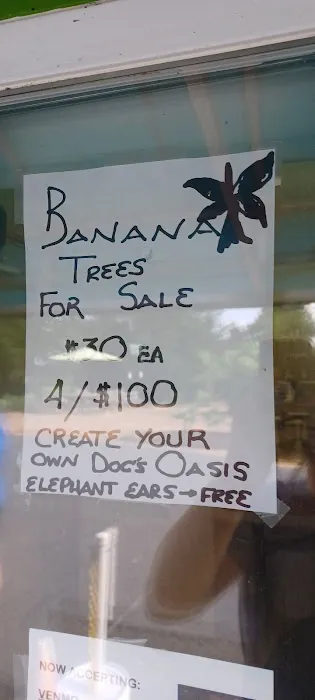 BANANA
TREES
FOR SALE
$30 EA
4/$100
CREATE YOUR
OWN DOG'S OASIS
ELEPHANT EARS → FREE
NOW ACCEPTING:
VENMO